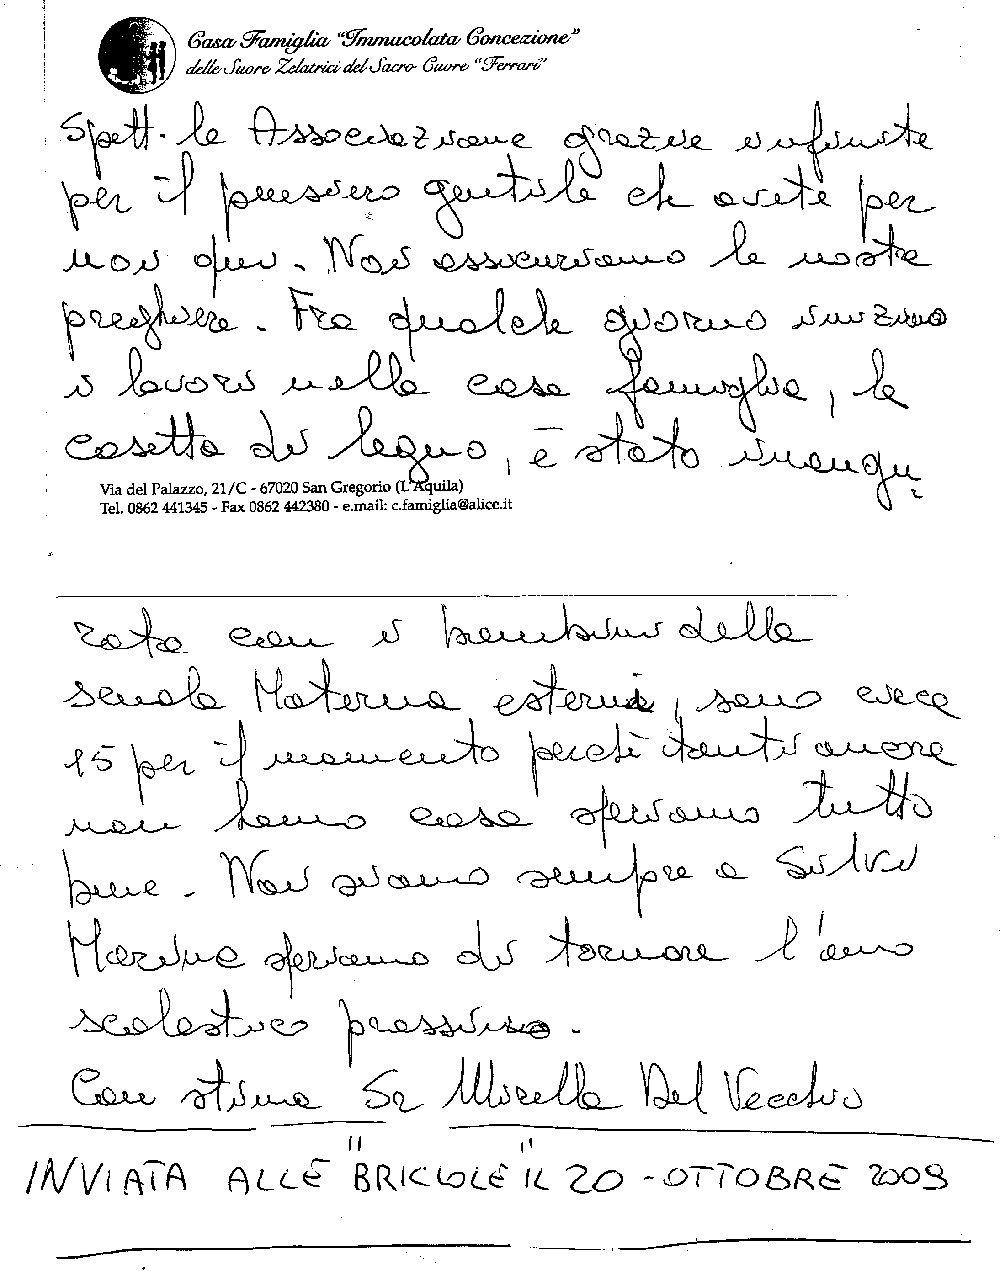 Casa Famiglia "Immacolata Concezione"
delle Suore Zelatrici del Sacro Cuore "Ferrari"
Spett.le Associazione grazie infinite
per il pensiero gentile che avete per
noi qui. Noi assicuriamo le nostre
preghiere. Fra qualche giorno iniziano
i lavori nella casa famiglia, la
casetta di legno, è stata inaugu
Via del Palazzo, 21/C - 67020 San Gregorio (L'Aquila)
Tel. 0862 441345 - Fax 0862 442380 - e.mail: c.famiglia@alice.it
rata con i bambini della
scuola Materna esterni, sono circa
15 per il momento perché tanti ancora
non hanno casa speriamo tutto
bene. Noi siamo sempre a Silvi
Marina speriamo di tornare l'anno
scolastico prossimo.
Con stima Sr Mirella Del Vecchio
INVIATA ALLE "BRICIOLE" IL 20 - OTTOBRE 2009